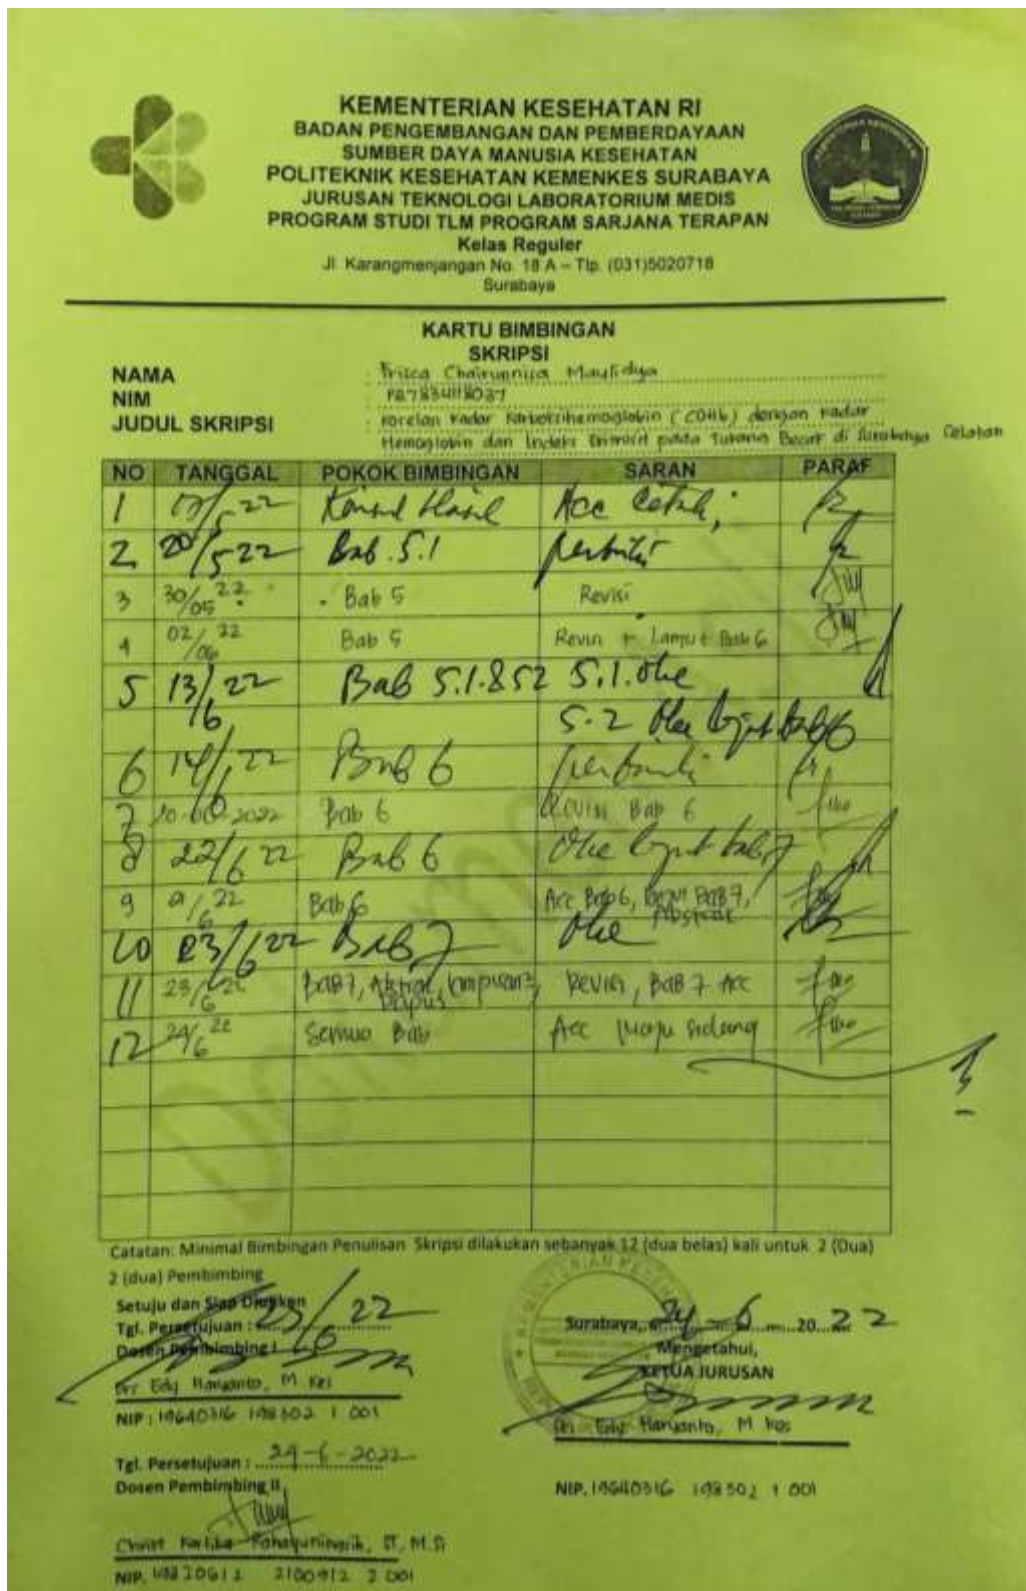 KEMENTERIAN KESEHATAN RI
BADAN PENGEMBANGAN DAN PEMBERDAYAAN
SUMBER DAYA MANUSIA KESEHATAN
POLITEKNIK KESEHATAN KEMENKES SURABAYA
JURUSAN TEKNOLOGI LABORATORIUM MEDIS
PROGRAM STUDI TLM PROGRAM SARJANA TERAPAN
Kelas Reguler
Jl. Karangmenjangan No. 18 A – Tlp. (031)5020718
Surabaya
KARTU BIMBINGAN
SKRIPSI
NAMA : Frisca Chairunnisa Maulidya
NIM : P27834118037
JUDUL SKRIPSI : Korelasi Kadar Karboksihemoglobin (COHb) dengan Kadar
Hemoglobin dan Indeks Eritrosit pada Tukang Becak di Surabaya Selatan
NO TANGGAL POKOK BIMBINGAN SARAN PARAF
1 Acc
2 20/5 22 Bab. 5.1
3 30/05 22 Bab 5 Revisi
4 02/06 22 Bab 5 Revisi + Lanjut Bab 6
5 13/6 22 Bab 5.1 & 5.2 5.1. oke
5.2 Oke lanjut bab 6
6 14/6 22 Bab 6
7 2022 Bab 6 Revisi Bab 6
8 22/6 22 Bab 6 Oke lanjut bab 7
9 22 Bab 6 Acc Bab 6, BAB 7,
Abstrak
10 23/6 22 Bab 7 Oke
11 23/6 22 BAB 7, Abstrak, Lampiran,
Dapus Revisi, BAB 7 Acc
12 24/6 22 Semua Bab Acc Maju Sidang
Catatan: Minimal Bimbingan Penulisan Skripsi dilakukan sebanyak 12 (dua belas) kali untuk 2 (Dua)
2 (dua) Pembimbing
Setuju dan Siap Diujikan
Tgl. Persetujuan : 23/6 22
Dosen Pembimbing I
Drs Edy Haryanto, M. Kes
NIP : 19640316 198302 1 001
Surabaya, 24-6 20 22
Mengetahui,
KETUA JURUSAN
Drs. Edy Haryanto, M Kes
NIP. 19640316 198302 1 001
Tgl. Persetujuan : 24-6-2022
Dosen Pembimbing II
Christ Kartika Rahayuningsih, ST, M.Si
NIP.